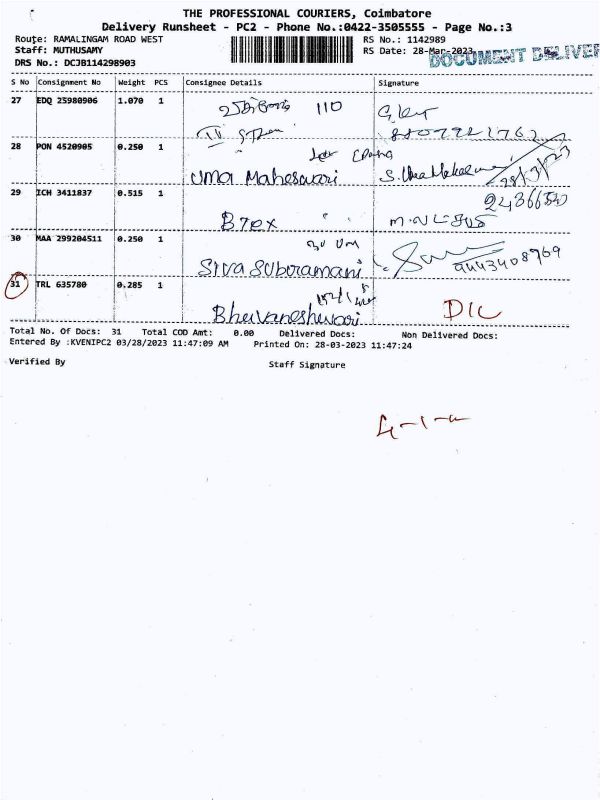 THE PROFESSIONAL COURIERS, Coimbatore
Delivery Runsheet - PC2 - Phone No.:0422-3505555 - Page No.:3
Route: RAMALINGAM ROAD WEST
RS No.: 1142989
Staff: MUTHUSAMY
RS Date: 28-Mar-2023
DOCUMENT DELIVER
DRS No.: DCJB114298903
S No Consignment No Weight PCS Consignee Details Signature
27 EDQ 25980906 1.070 1 110
28 PON 4520905 0.250 1
Uma Maheswari S. Uma Maheswari 28/3/23
29 ICH 3411837 0.515 1
30 MAA 299204511 0.250 1
Siva Subiramani 9443408769
31 TRL 635780 0.285 1
Bhuvaneshwari D/L
Total No. Of Docs: 31 Total COD Amt: 0.00 Delivered Docs: Non Delivered Docs:
Entered By :KVENIPC2 03/28/2023 11:47:09 AM Printed On: 28-03-2023 11:47:24
Verified By Staff Signature